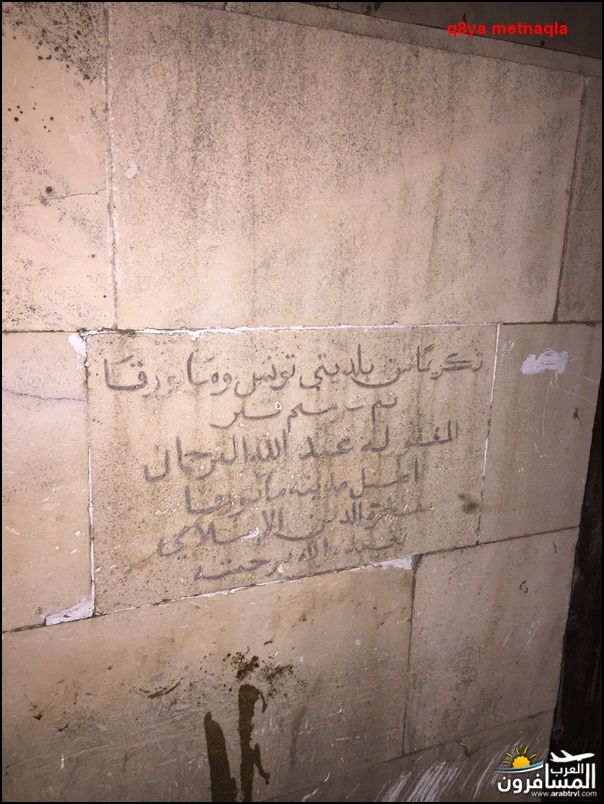 q8ya metnaqla
تكريما من بلديتي تونس ومايورقا
تم ترسيم قبر
المغفور له عبد الله الترجمان
اصيل مدينة مايورقا
الدين الإسلامي
تغمده الله برحمته
العرب
المسافرون
www.arabtrvl.com